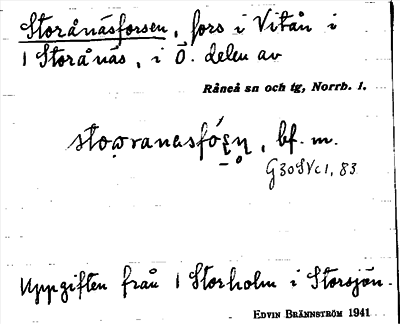 Storånäsforsen, fors i Vitån i
1 Storånäs, i Ö. delen av
Råneå sn och tg, Norrb. l.
bf. m.
G30SVc1, 83
Uppgiften från 1 Storholm i Storsjön.
EDVIN BRÄNNSTRÖM 1941